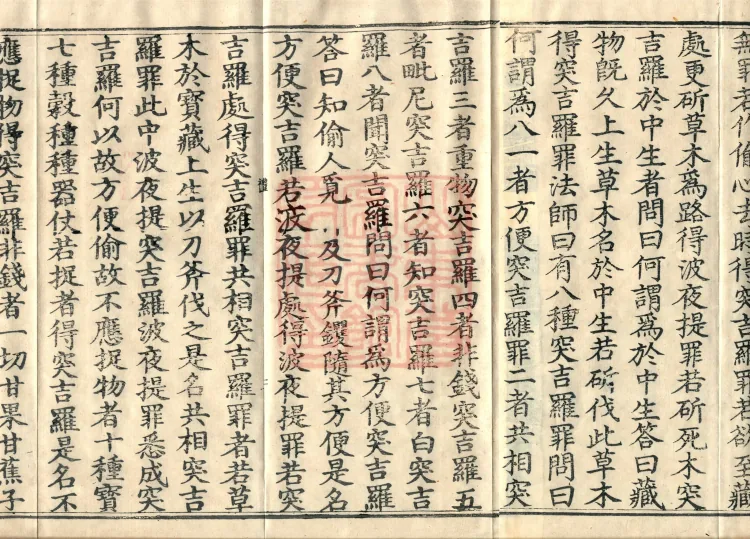 無罪若作偷心去時得突吉羅罪若欲至藏
處更斫草木為路得波夜提罪若斫死木突
吉羅於中生者問曰何謂為於中生答曰藏
物既久上生草木名於中生若斫伐此草木
得突吉羅罪法師曰有八種突吉羅罪問曰
何謂為八一者方便突吉羅罪二者共相突
吉羅三者重物突吉羅四者非錢突吉羅五
者毗尼突吉羅六者知突吉羅七者白突吉
羅八者聞突吉羅問曰何謂為方便突吉羅
答曰知偷人覓及刀斧钁隨其方便是名
方便突吉羅若波夜提處得波夜提罪若突
吉羅處得突吉羅罪共相突吉羅罪者若草
木於寶藏上生以刀斧伐之是名共相突吉
羅罪此中波夜提突吉羅波夜提罪悉成突
吉羅何以故方便偷故不應捉物者十種寶
七種穀種種器仗若捉者得突吉羅是名不
應捉物得突吉羅非錢者一切甘果甘蕉子